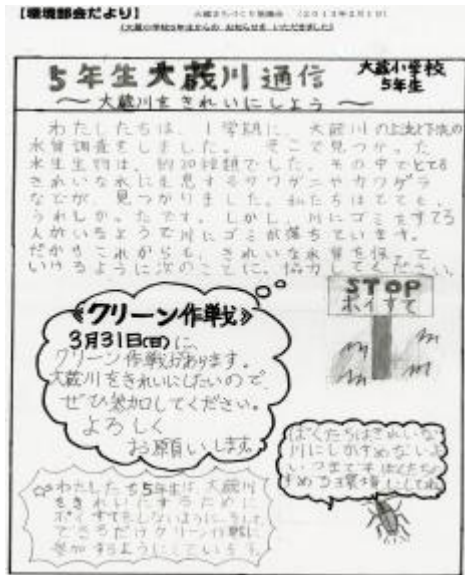 【環境部会だより】
大蔵まちづくり協議会 (2013年3月1日)
(大蔵小学校5年生からの お知らせを いただきました)
5年生大蔵川通信
大蔵小学校
5年生
～大蔵川をきれいにしよう～
わたしたちは、1学期に、大蔵川の上流と下流の
水質調査をしました。そこで見つかった
水生生物は、約20種類でした。その中でとても
きれいな水に生息するサワガニやカワゲラ
などが、見つかりました。私たちはとても、
うれしかったです。しかし、川にゴミをすてる
人がいるようで川にゴミが落ちています。
だからこれからも、きれいな水質を保って
いけるように次のことに。協力してください。
STOP
ポイすて
《クリーン作戦》
3月31日(日)に、
クリーン作戦があります。
大蔵川をきれいにしたいので、
ぜひ参加してください。
よろしく
お願いします。
ぼくたちはきれいな
川にしかすめないよ
いつまでもぼくたちの
すめる環境にしてね
☆わたしたち5年生は、大蔵川
をきれいにするために
ポイすてをしないように、そして、
できるだけクリーン作戦に
参加するようにしています。